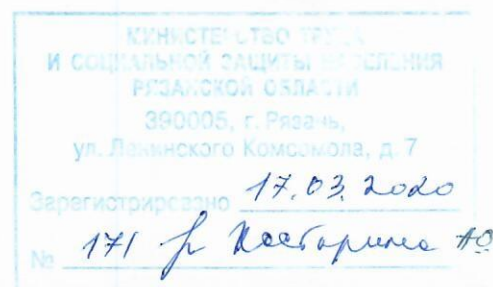 МИНИСТЕРСТВО ТРУДА
И СОЦИАЛЬНОЙ ЗАЩИТЫ НАСЕЛЕНИЯ
РЯЗАНСКОЙ ОБЛАСТИ
390005, г. Рязань,
ул. Ленинского Комсомола, д. 7
Зарегистрировано 17.03.2020
№ 171